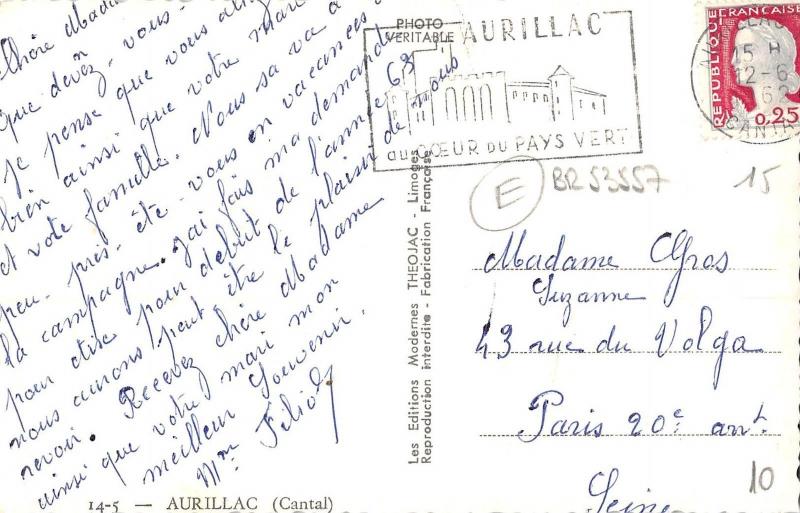 Chère Mada
que devez-vous
je pense que vous al
bien ainsi que votre mari
et votre famille. Nous sa va à
peu-près, êtes-vous en vacances à
la campagne. j'ai fais ma demande
pour être pour début de l'année 63
nous aurons peut être le plaisir de vous
revoir. Recevez chère Madame
ainsi que votre mari mon
meilleur Souvenir.
Mme Filiol
14-5 — AURILLAC (Cantal)
Les Editions Modernes THEOJAC - Limoges
Reproduction Interdite - Fabrication Française
PHOTO
VERITABLE
AURILLAC
au CŒUR DU PAYS VERT
15 H
12-6
62
CANTAL
REPUBLIQUE FRANCAISE
0,25
E
BR 53557
15
Madame Gros
Suzanne
43 rue du Volga
Paris 20e arrt
Seine
10